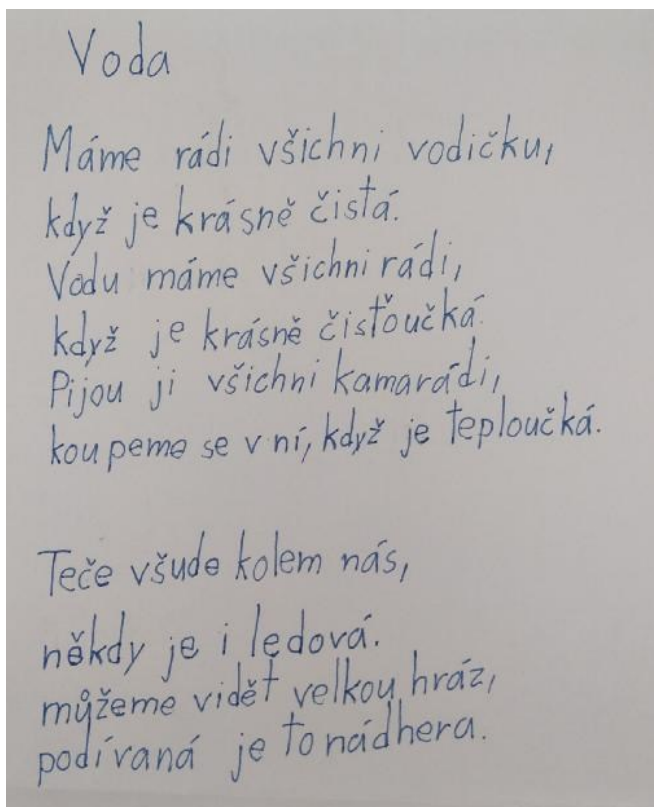 Voda
Máme rádi všichni vodičku,
když je krásně čistá.
Vodu máme všichni rádi,
když je krásně čisťoučká.
Pijou ji všichni kamarádi,
koupeme se v ní, když je teploučká.
Teče všude kolem nás,
někdy je i ledová.
můžeme vidět velkou hráz,
podívaná je to nádhera.